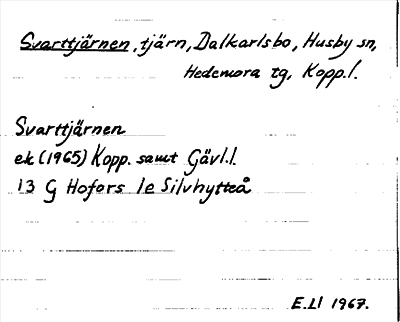 Svarttjärnen, tjärn, Dalkarlsbo, Husby sn,
Hedemora tg, Kopp.l.
Svarttjärnen
ek (1965) Kopp. samt Gävl.l.
13 G Hofors 1e Silvhytteå
E.Ll 1967.